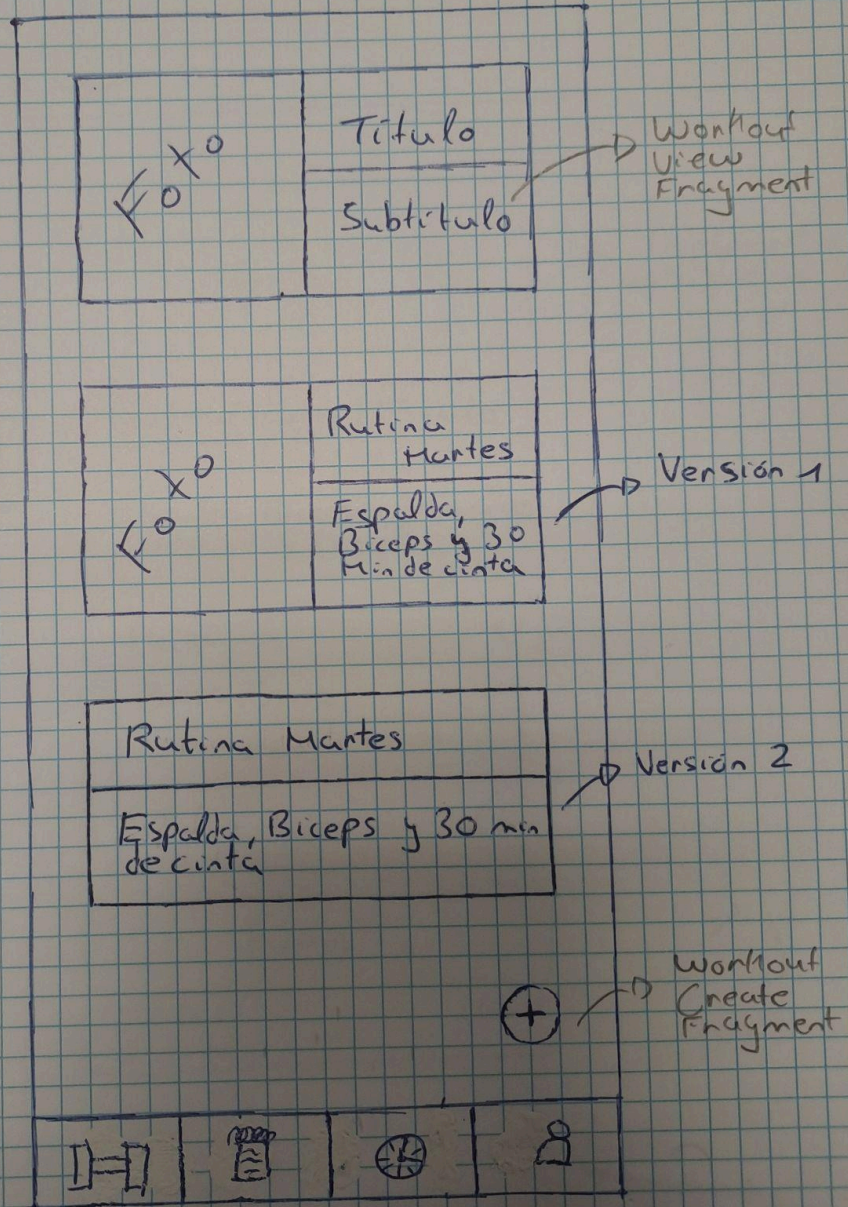 Título
Subtítulo
Workout
View
Fragment
Rutina
Martes
Espalda,
Biceps y 30
Min de cinta
Versión 1
Rutina Martes
Espalda, Biceps y 30 min
de cinta
Versión 2
Workout
Create
Fragment